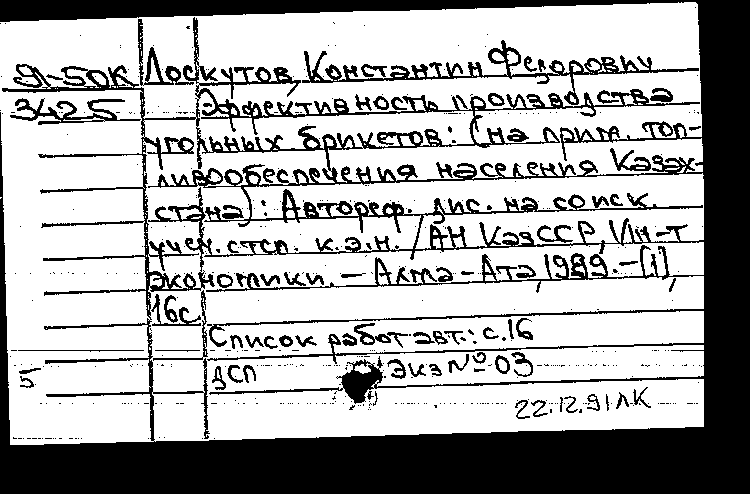 Я-50К Лоскутов, Константин Федорович
3425 Эффективность производства
угольных брикетов: (на прим. топ-
ливообеспечения населения Казах-
стана): Автореф. дис. на соиск.
учен. степ. к.э.н. / АН КазССР, Ин-т
экономики. – Алма-Ата, 1989. – [1],
16с
Список работ авт.: с.16
5 ДСП Экз № 03
22.12.91 ЛК